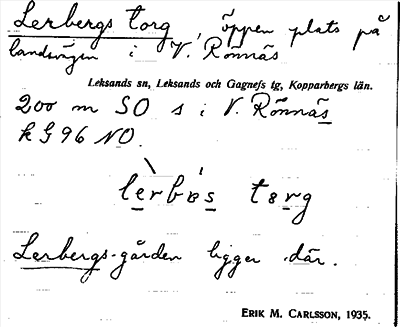 Lerbergs torg, öppen plats på
landsvägen i V. Rönnäs
Leksands sn, Leksands och Gagnefs tg, Kopparbergs län.
200 m SO s i V. Rönnäs
k G 96 NO.
lerbǝs torg
Lerbergs-gården ligger där.
ERIK M. CARLSSON, 1935.